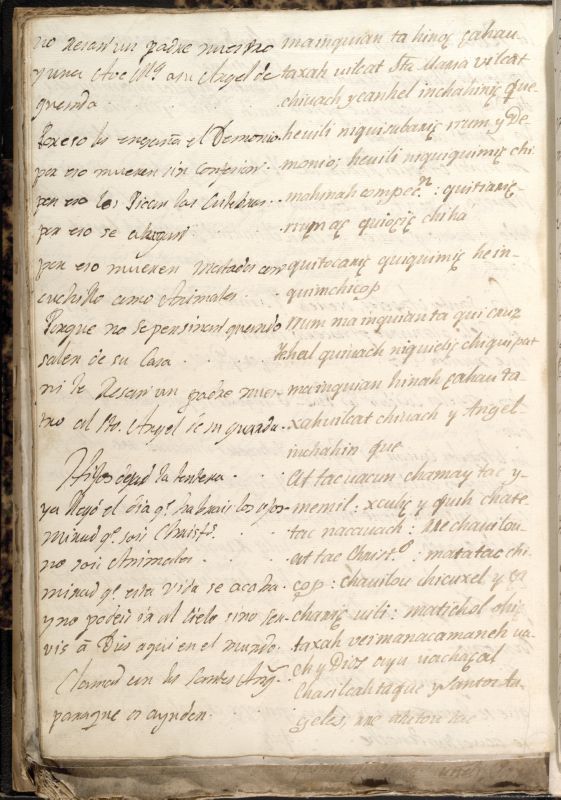 no resan un padre nuestro
y una Ave Mª a su Angel de
guarda
Por eso los engaña el Demonio
por eso mueren sin confesion
por eso los Pican las Culebras
por eso se ahogan
por eso mueren matados con
cuchillo como Animales
Porque no se persinan quando
salen de su Casa
ni le Resan un padre nues-
tro al Sto. Angel de su guarda
Hijos dejad la tonteria
ya llegó el dia q. habrais los ojos
mirad q. sois Christs.
no sois Animales
mirad q. esta vida se acaba
y no podeis ir al Cielo sino ser-
vis â Dios aqui en el mundo
Clamad con los Santos Ang.
para que os ayuden
mainquian ta hinoc cahau-
taxah vilcat Sta Maria vilcat
chiuach y canhel inchahinic que
heuili niquisubanic rrum y De-
monio; heuili niquiquimic chi
mahinah compec.n : quitianic
rrum ac quiocic chi ha
quitocanic quiquimic he in-
quimchicop
rrum mainquian ta qui cruz
hal quiuach niquielic chiquipat
mainquian hinah cahau ta-
xahuilcat chiuach y Angel-
inchahin que
At tac uacun chamay tac y-
memil : xculic y quih chate
tac nacauach : chauilou
at tac Christ.o : matatac chi-
cop : chauilou chicuxel y ca
chanic uili : matichol ohic
taxah vei manacamaneh ua-
ch y Dios ayu uachacal
Chasilcah ta que y santo An-
geles, tac